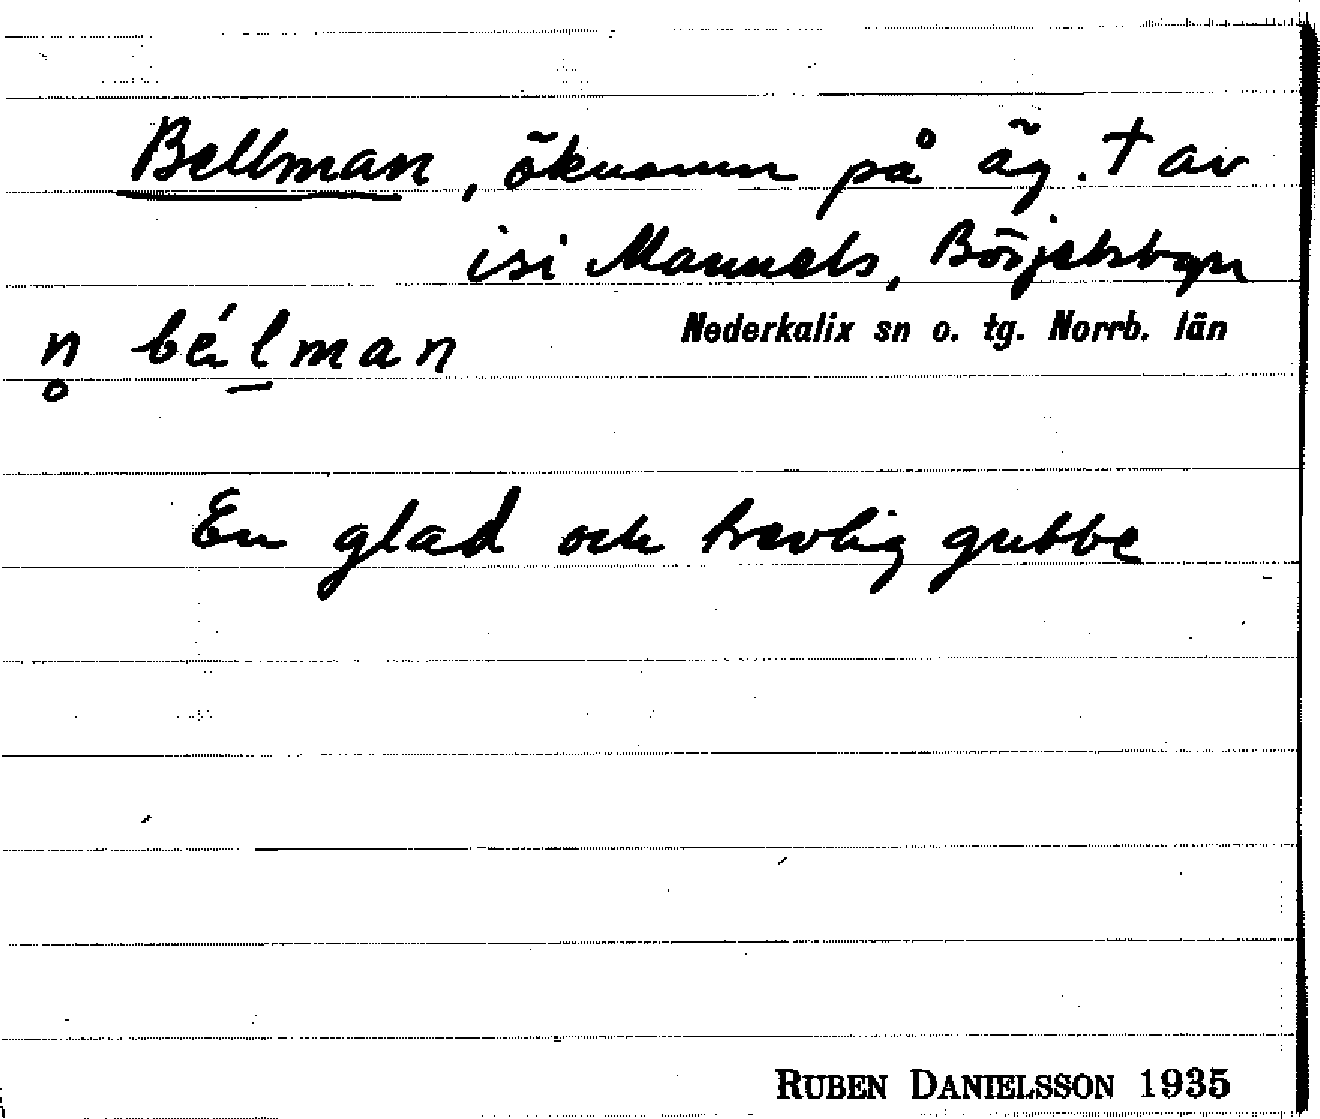 Bellman, öknamn på äg. † av
isi Mannels, Börjelsbyn
Nederkalix sn o. tg. Norrb. län
n̥ bélman
En glad och trevlig gubbe
RUBEN DANIELSSON 1935